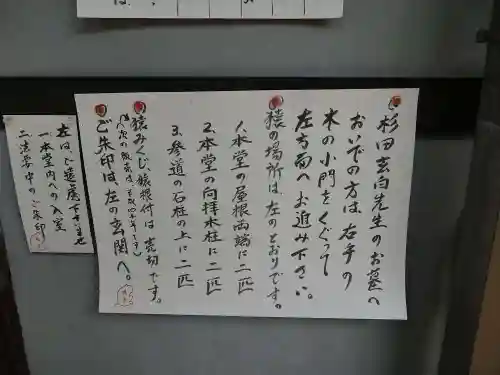 杉田玄白先生のお墓へ
おいでの方は、右手の
木の小門をくぐって
左方面へお進み下さい。
猿の場所は、左のとおりです。
1.本堂の屋根両端に二匹
2.本堂の向拝木柱に二匹
3.参道の石柱の上に二匹
猿みくじ、猿根付は、売切です。
ご朱印は、左の玄関へ。
左はご遠慮下さいませ
一、本堂内への入室
二、法要中のご朱印